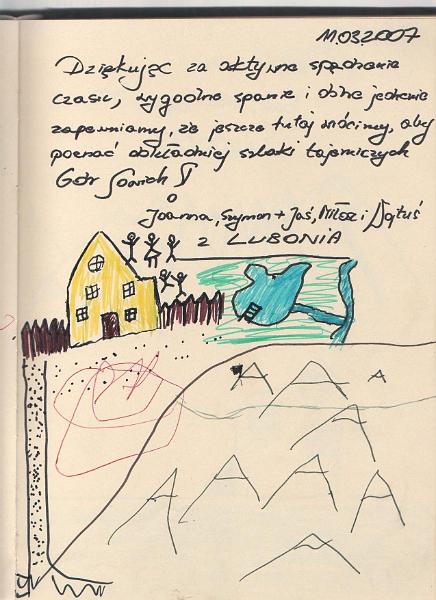 11.03.2007
Dziękując za aktywne spędzenie
czasu, wygodne spanie i dobre jedzenie
zapewniamy, że jeszcze tutaj wrócimy, aby
poznać dokładniej szlaki tajemniczych
Gór Sowich!
Joanna, Szymon + Jaś, Miłosz i
Z LUBONIA